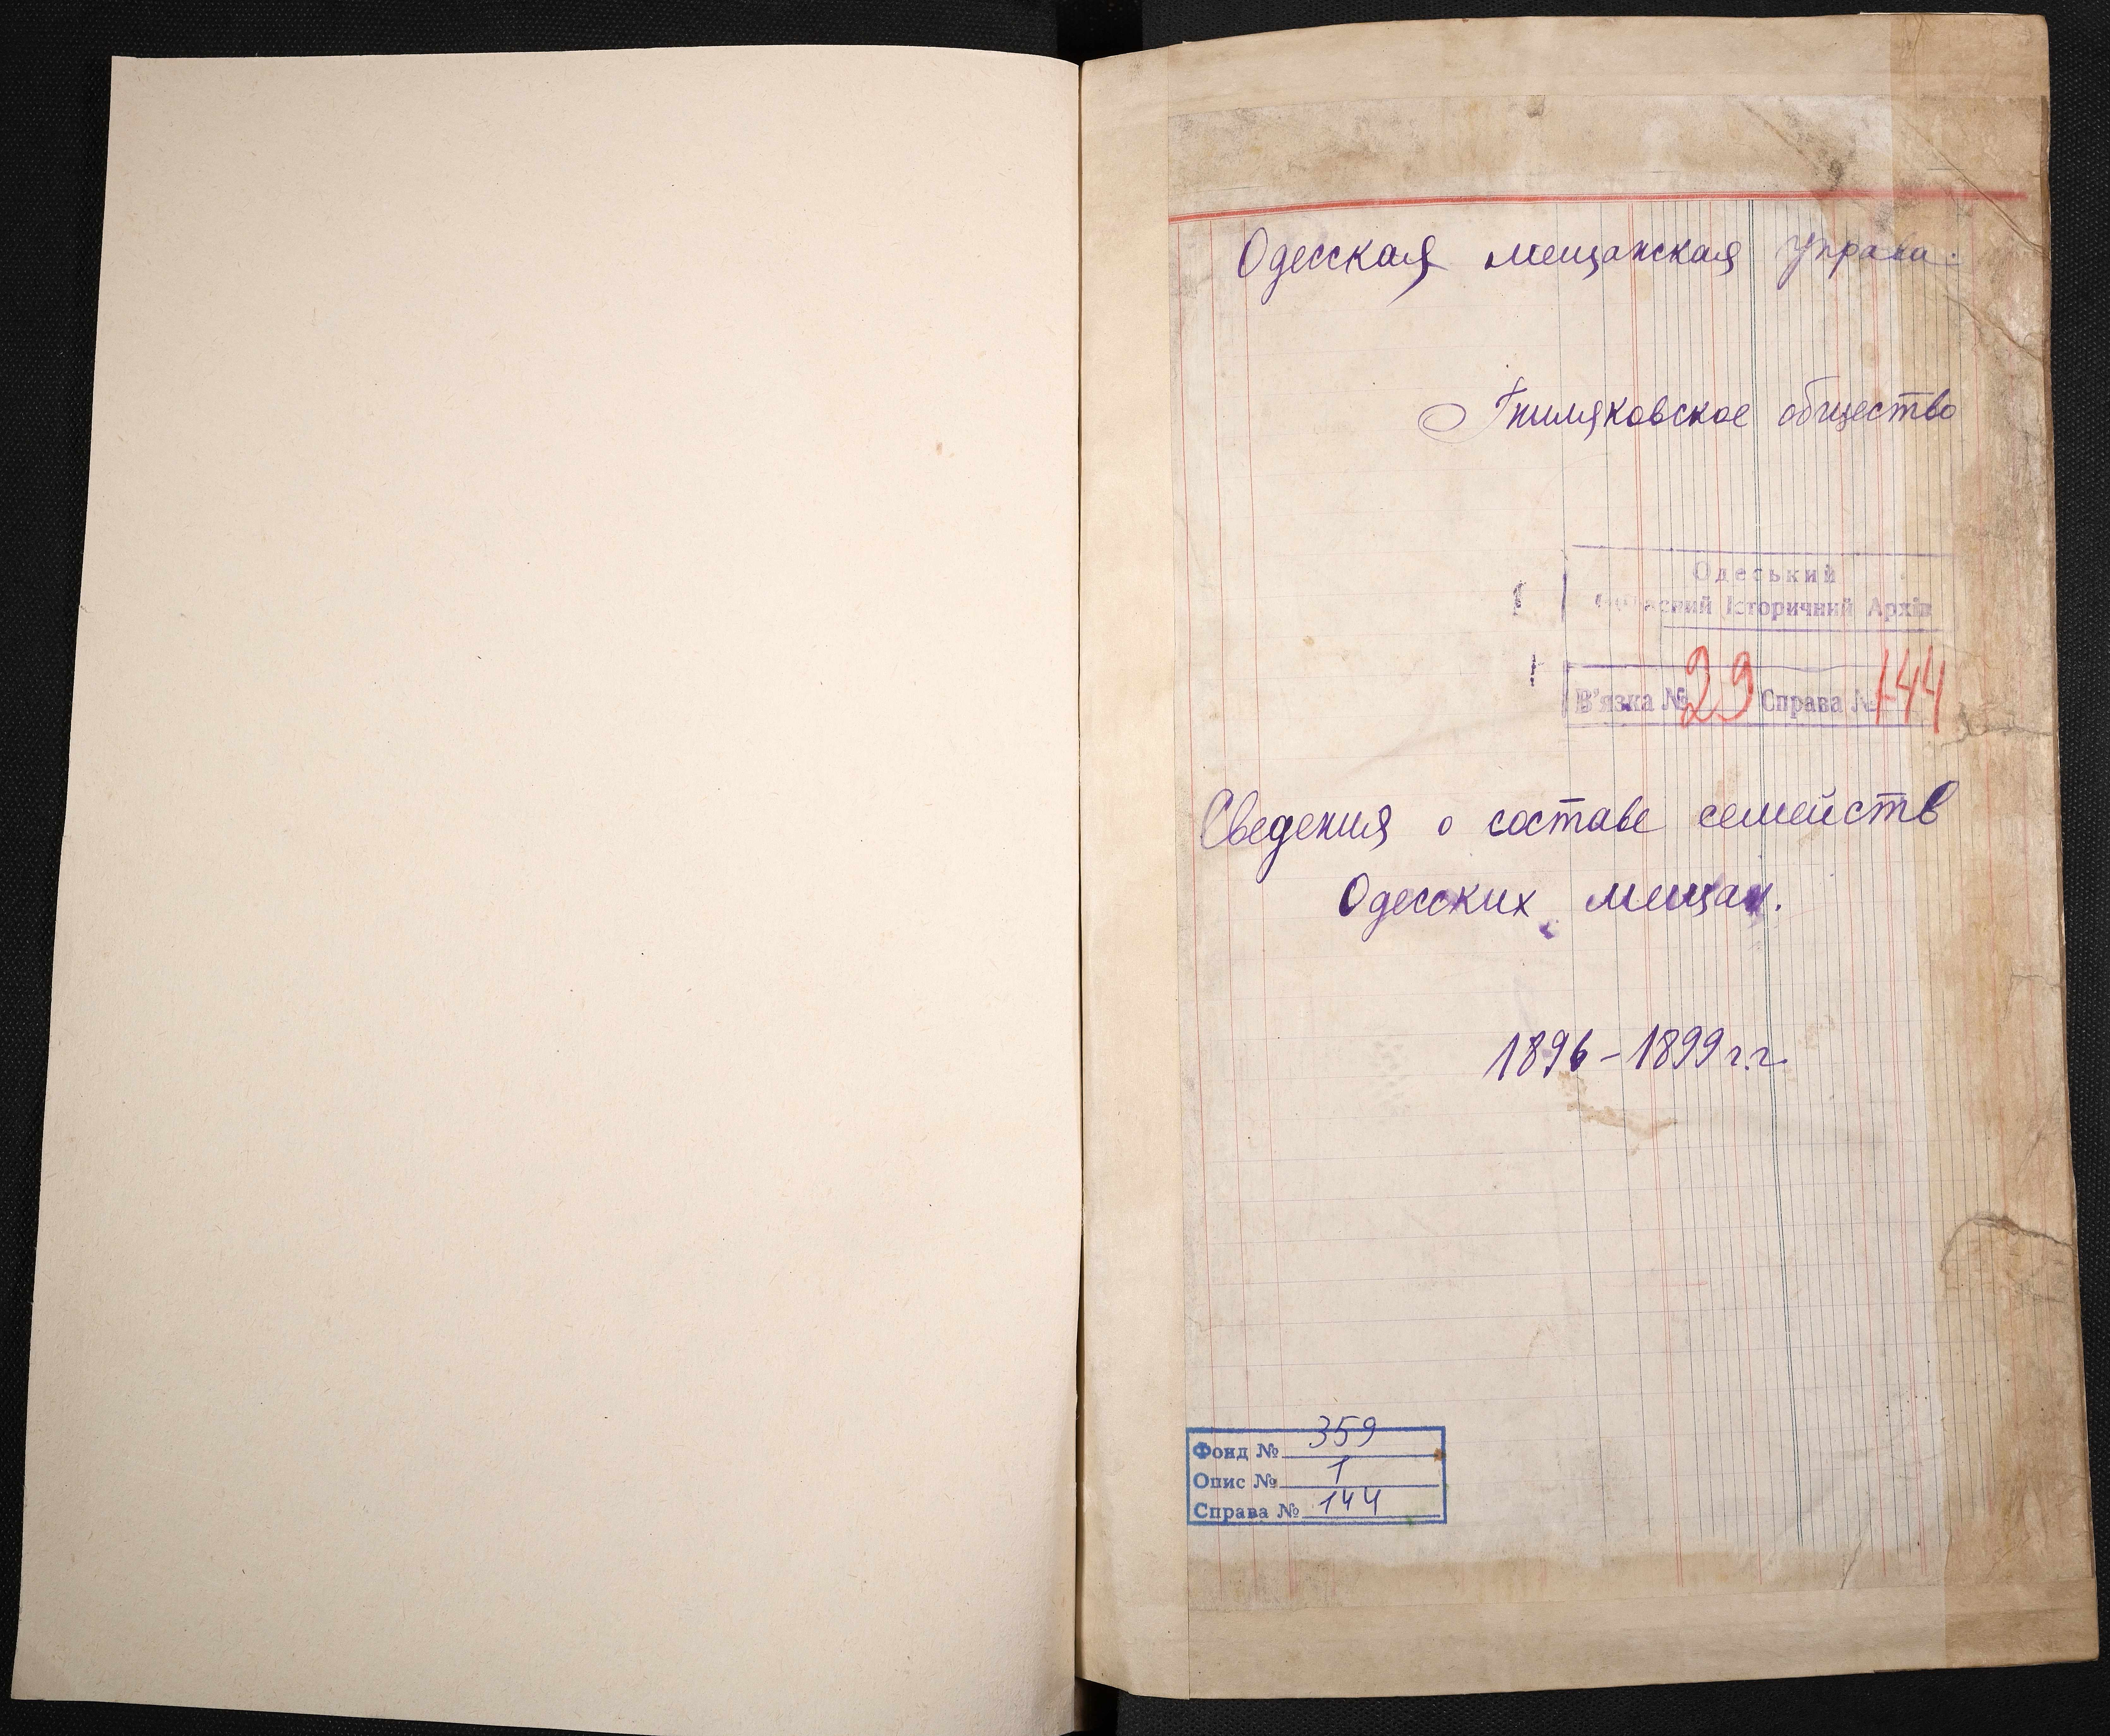 Одесская мещанская управа.
Гниляковское общество
Одеський
Історичний Архів
В'язка № 29 Справа № 144
Сведения о составе семейств
Одесских мещан.
1896-1899 г.г.
Фонд № 359
Опис № 1
Справа № 144